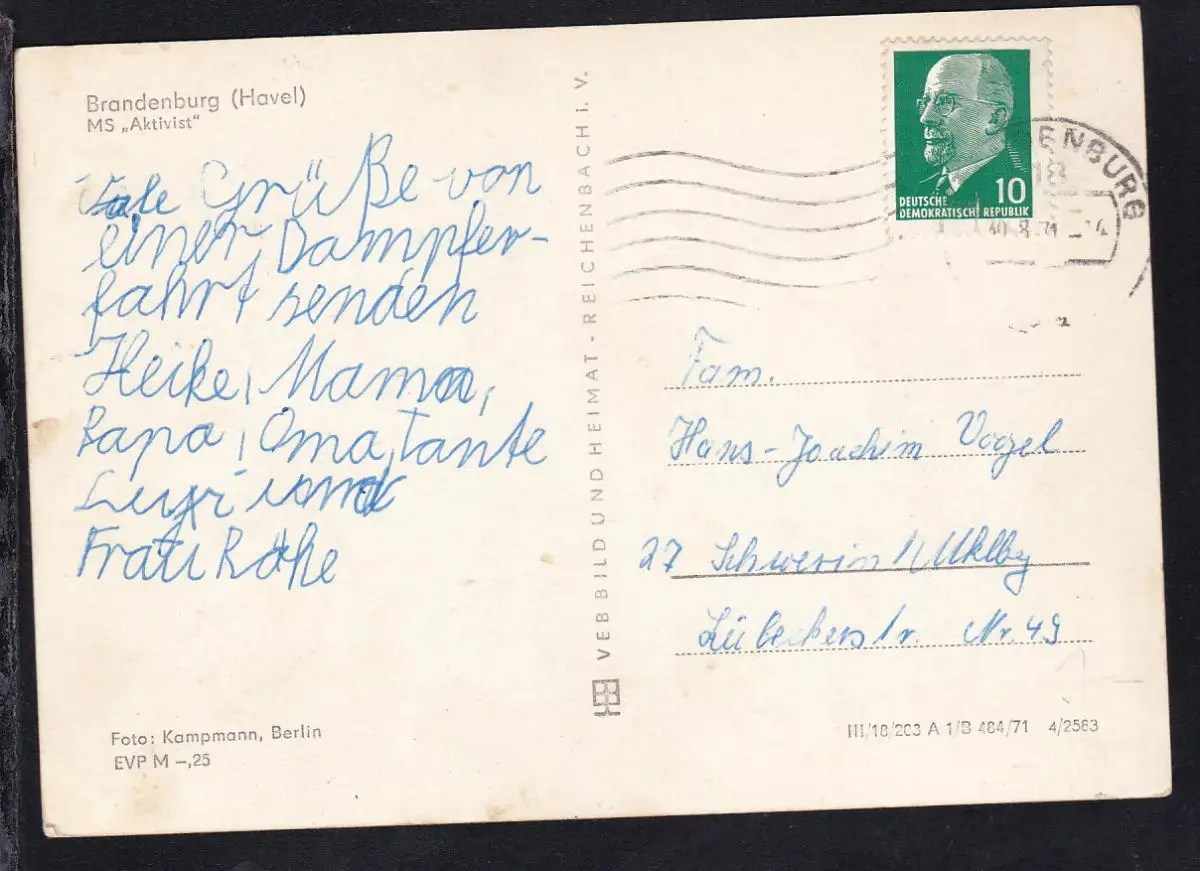 Brandenburg (Havel)
MS „Aktivist"
Viele Grüße von
einer Dampfer-
fahrt senden
Heike, Mama,
Papa, Oma, Tante
und
Frau
Foto: Kampmann, Berlin
EVP M –,25
VEB BILD UND HEIMAT - REICHENBACH i. V.
10
DEUTSCHE
DEMOKRATISCHE REPUBLIK
ENBURG
18
Fam.
Hans-Joachim Vogel
27 Schwerin
Lübeckerstr. Nr. 49
III/18/203 A 1/B 484/71 4/2583